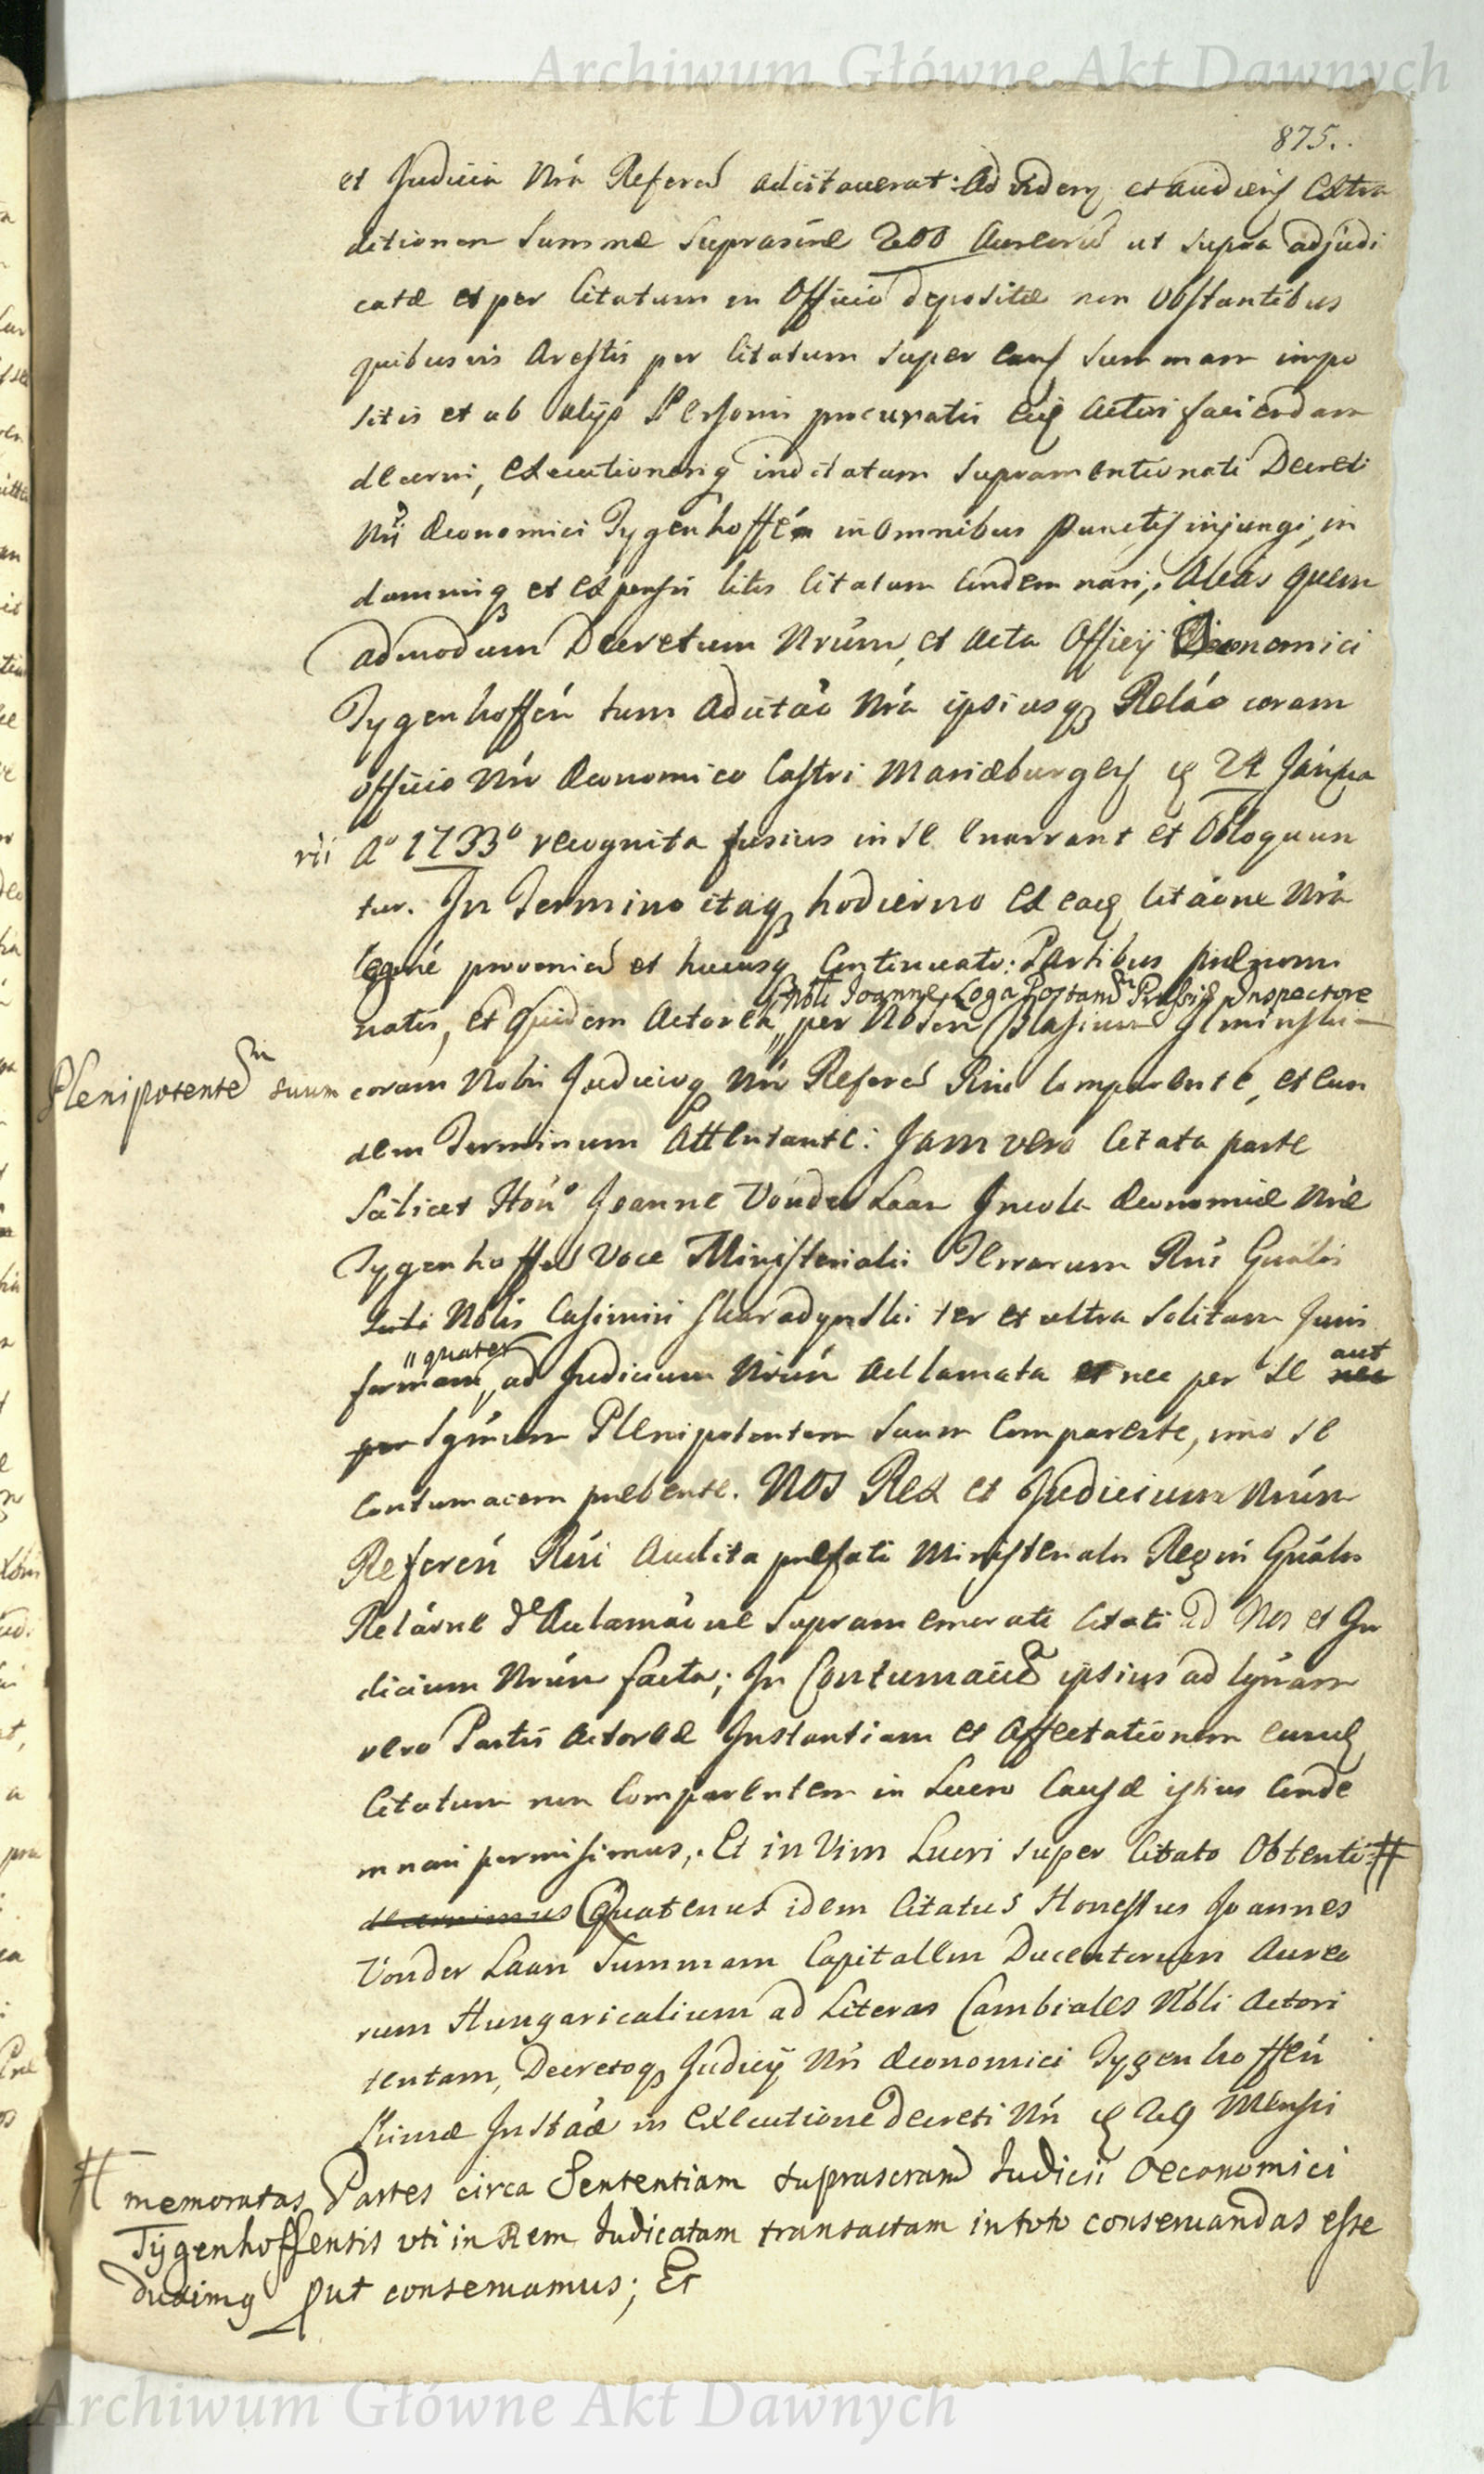 Archiwum Główne Akt Dawnych
875.
et Judicia Nrã Referen adcitaverat: Ad videng et audieng Extra
ditionem Summæ Suprascrıæ 200 Aureorũ ut supra adjudi
catæ et per Citatum in Officio depositæ non Obstantibus
quibusvis Arestis per Citatum super eang Summam impo
sitis et ab alijs Personis procuratis eiq Actori faciendam
decerni, Executionemq indilatam supramentionati Decreti
Nrĩ Œconomici Tygenhoffen in omnibus punctis injungi, in
damnisq et expensis litis Citatum Condemnari; Aleas quem
admodum Decretum Nrũm, et Acta Officij Œconomici
Tygenhoffeń tum Adcitaõ Nrã ipsiusq Relaõ coram
officio Nrõ Œconomico Castri Mariæburgeń 24 Janua
rii Aº 1733º recognita fusius in se enarrant et Obloquun
tur. In Termino itaq hodierno ex eaq Citaõne Nrã
legmé provenień et hucusq Continuato: Partibus prænomi
Nbli Joanne Loga Postanũ Prussiæ Inspectore
natis, et quidem Actorea per Noblem Blasium
Plenipotentem suum coram Nobis Judicioq Nrõ Referen Rñi Comparente, et eun
dem Terminum Attentante: Jam vero Citata parte
Scilicet Honº Joanne Vonder Laan Incola Œconomiæ Nræ
Tygenhoffeń Voce Ministerialis Terrarum Rñi Gnãlis
Nobis Casimiri Skaradynski ter et ultra Solitam Juris
"quater aut
formam, ad Judicium Nrũm Acclamata et nec per se nec
per Sgñum Plenipotentem suum Comparente, imo se
Contumacem præbente. NOS REX et Judicium Nrũm
Refereń Rñi Audita præfati Ministerialis Regni Gnãlis
Relaõne de Acclamaõne Supramemorati Citati ad Nos et Ju
dicium Nrũm facta; In Contumaciã ipsius ad lgnãm
vero Partis Actoreæ Instantiam et Affectationem eung
Citatum non Comparentem in Lucro Causæ istius Conde
mnari permisimus,. Et in Vim Lucri super Citato Obtenti #
decernimus Quatenus idem Citatus Honestus Joannes
Vonder Laan Summam Capitalem Ducentorum Aureo
rum Hungaricalium ad Literas Cambiales Nbli Actori
tentam, Decretoq Judicij Nrĩ Œconomici Tygenhoffeń
Primæ Instãæ in Executione decreti Nrĩ 29 Mensis
# memoratas Partes circa Sententiam suprascram Judicii Oeconomici
Tÿgenhoffensis uti in Rem Judicatam transactam in toto conservandas esse
duximq put conservamus; Et
Archiwum Główne Akt Dawnych